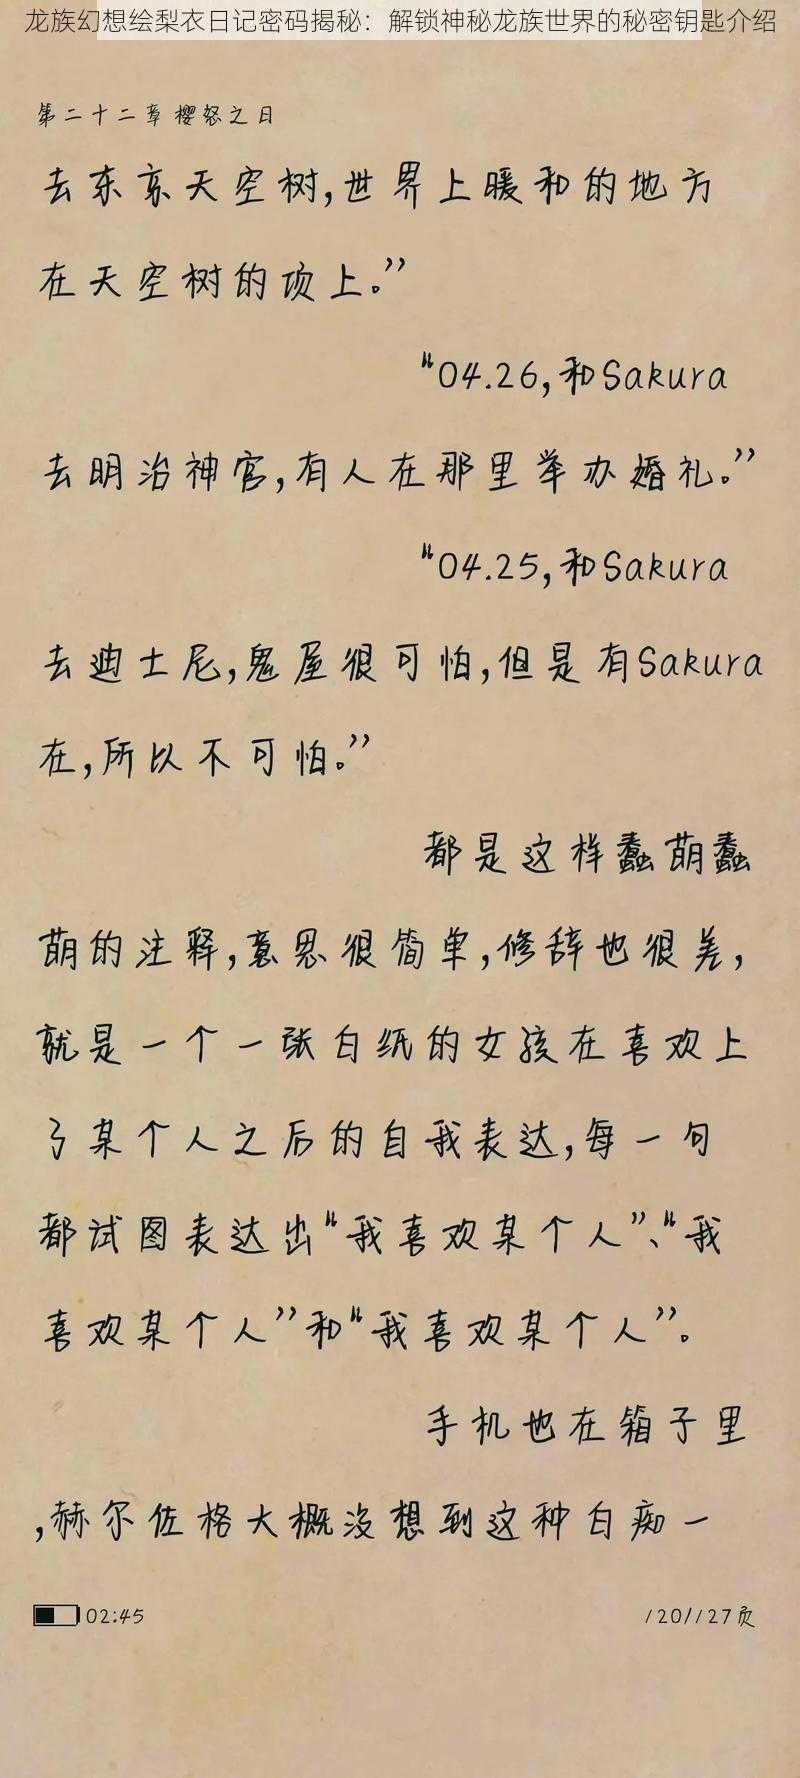 龙族幻想绘梨衣日记密码揭秘：解锁神秘龙族世界的秘密钥匙介绍
第二十二章樱怒之日
去东京天空树,世界上暖和的地方
在天空树的顶上。”
“04.26,和Sakura
去明治神宫,有人在那里举办婚礼。”
“04.25,和Sakura
去迪士尼,鬼屋很可怕,但是有Sakura
在,所以不可怕。”
都是这样蠢萌蠢
萌的注释,意思很简单,修辞也很差,
就是一个一张白纸的女孩在喜欢上
了某个人之后的自我表达,每一句
都试图表达出“我喜欢某个人”、“我
喜欢某个人”和“我喜欢某个人”。
手机也在箱子里
,赫尔佐格大概没想到这种白痴一
02:45
120/127页